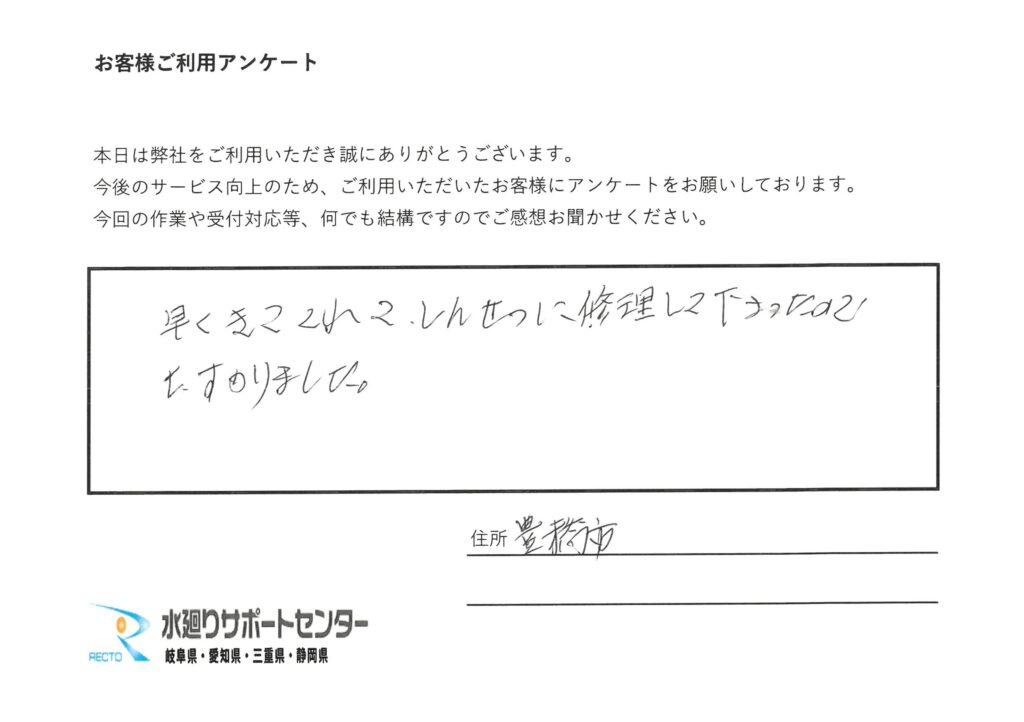 お客様ご利用アンケート
本日は弊社をご利用いただき誠にありがとうございます。
今後のサービス向上のため、ご利用いただいたお客様にアンケートをお願いしております。
今回の作業や受付対応等、何でも結構ですのでご感想お聞かせください。
早くきてくれて、しんせつに修理して下さったので
たすかりました。
住所 豊橋市
RECTO
水廻りサポートセンター
岐阜県・愛知県・三重県・静岡県